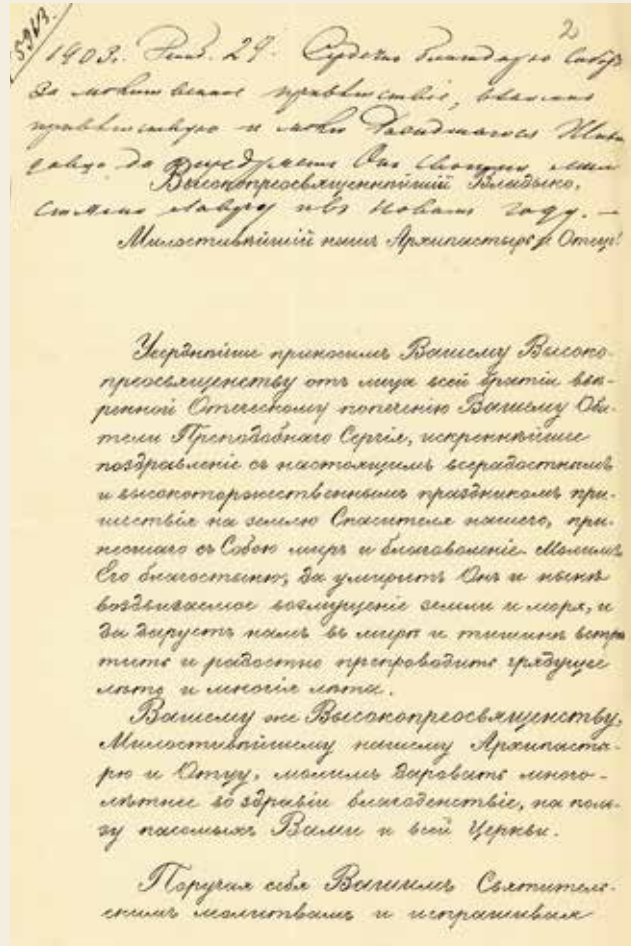 5963.
2
1903. Декб. 29. Сердечно благодарю Соборъ
за молитвенное привѣтствіе, взаимно
привѣтствую и молю Родившагося Жизно
давца да Онъ своими мило
Высокопреосвященнѣйшій Владыко,
стями Лавру и въ новомъ году. —
Милостивѣйшій нашъ Архипастырь и Отецъ!
Усерднѣйше приносимъ Вашему Высоко-
преосвященству отъ лица всей братіи ввѣ-
ренной Отеческому попеченію Вашему Оби-
тели Преподобнаго Сергія, искреннѣйшее
поздравленіе съ настоящимъ всерадостнымъ
и высокоторжественнымъ праздникомъ при-
шествія на землю Спасителя нашего, при-
несшаго съ Собою миръ и благоволеніе. Молимъ
Его благостыню, да умиритъ Онъ и нынѣ
воздвизаемое возмущеніе земли и моря, и
да даруетъ намъ въ мирѣ и тишинѣ встрѣ
тить и радостно препроводить грядущее
лѣто и многія лѣта.
Вашему же Высокопреосвященству,
Милостивѣйшему нашему Архипасты-
рю и Отцу, молимъ даровать много-
лѣтнее во здравіи благоденствіе, на поль-
зу пасомыхъ Вами и всей Церкви.
Поручая себя Вашимъ Святитель-
скимъ молитвамъ и испрашивая